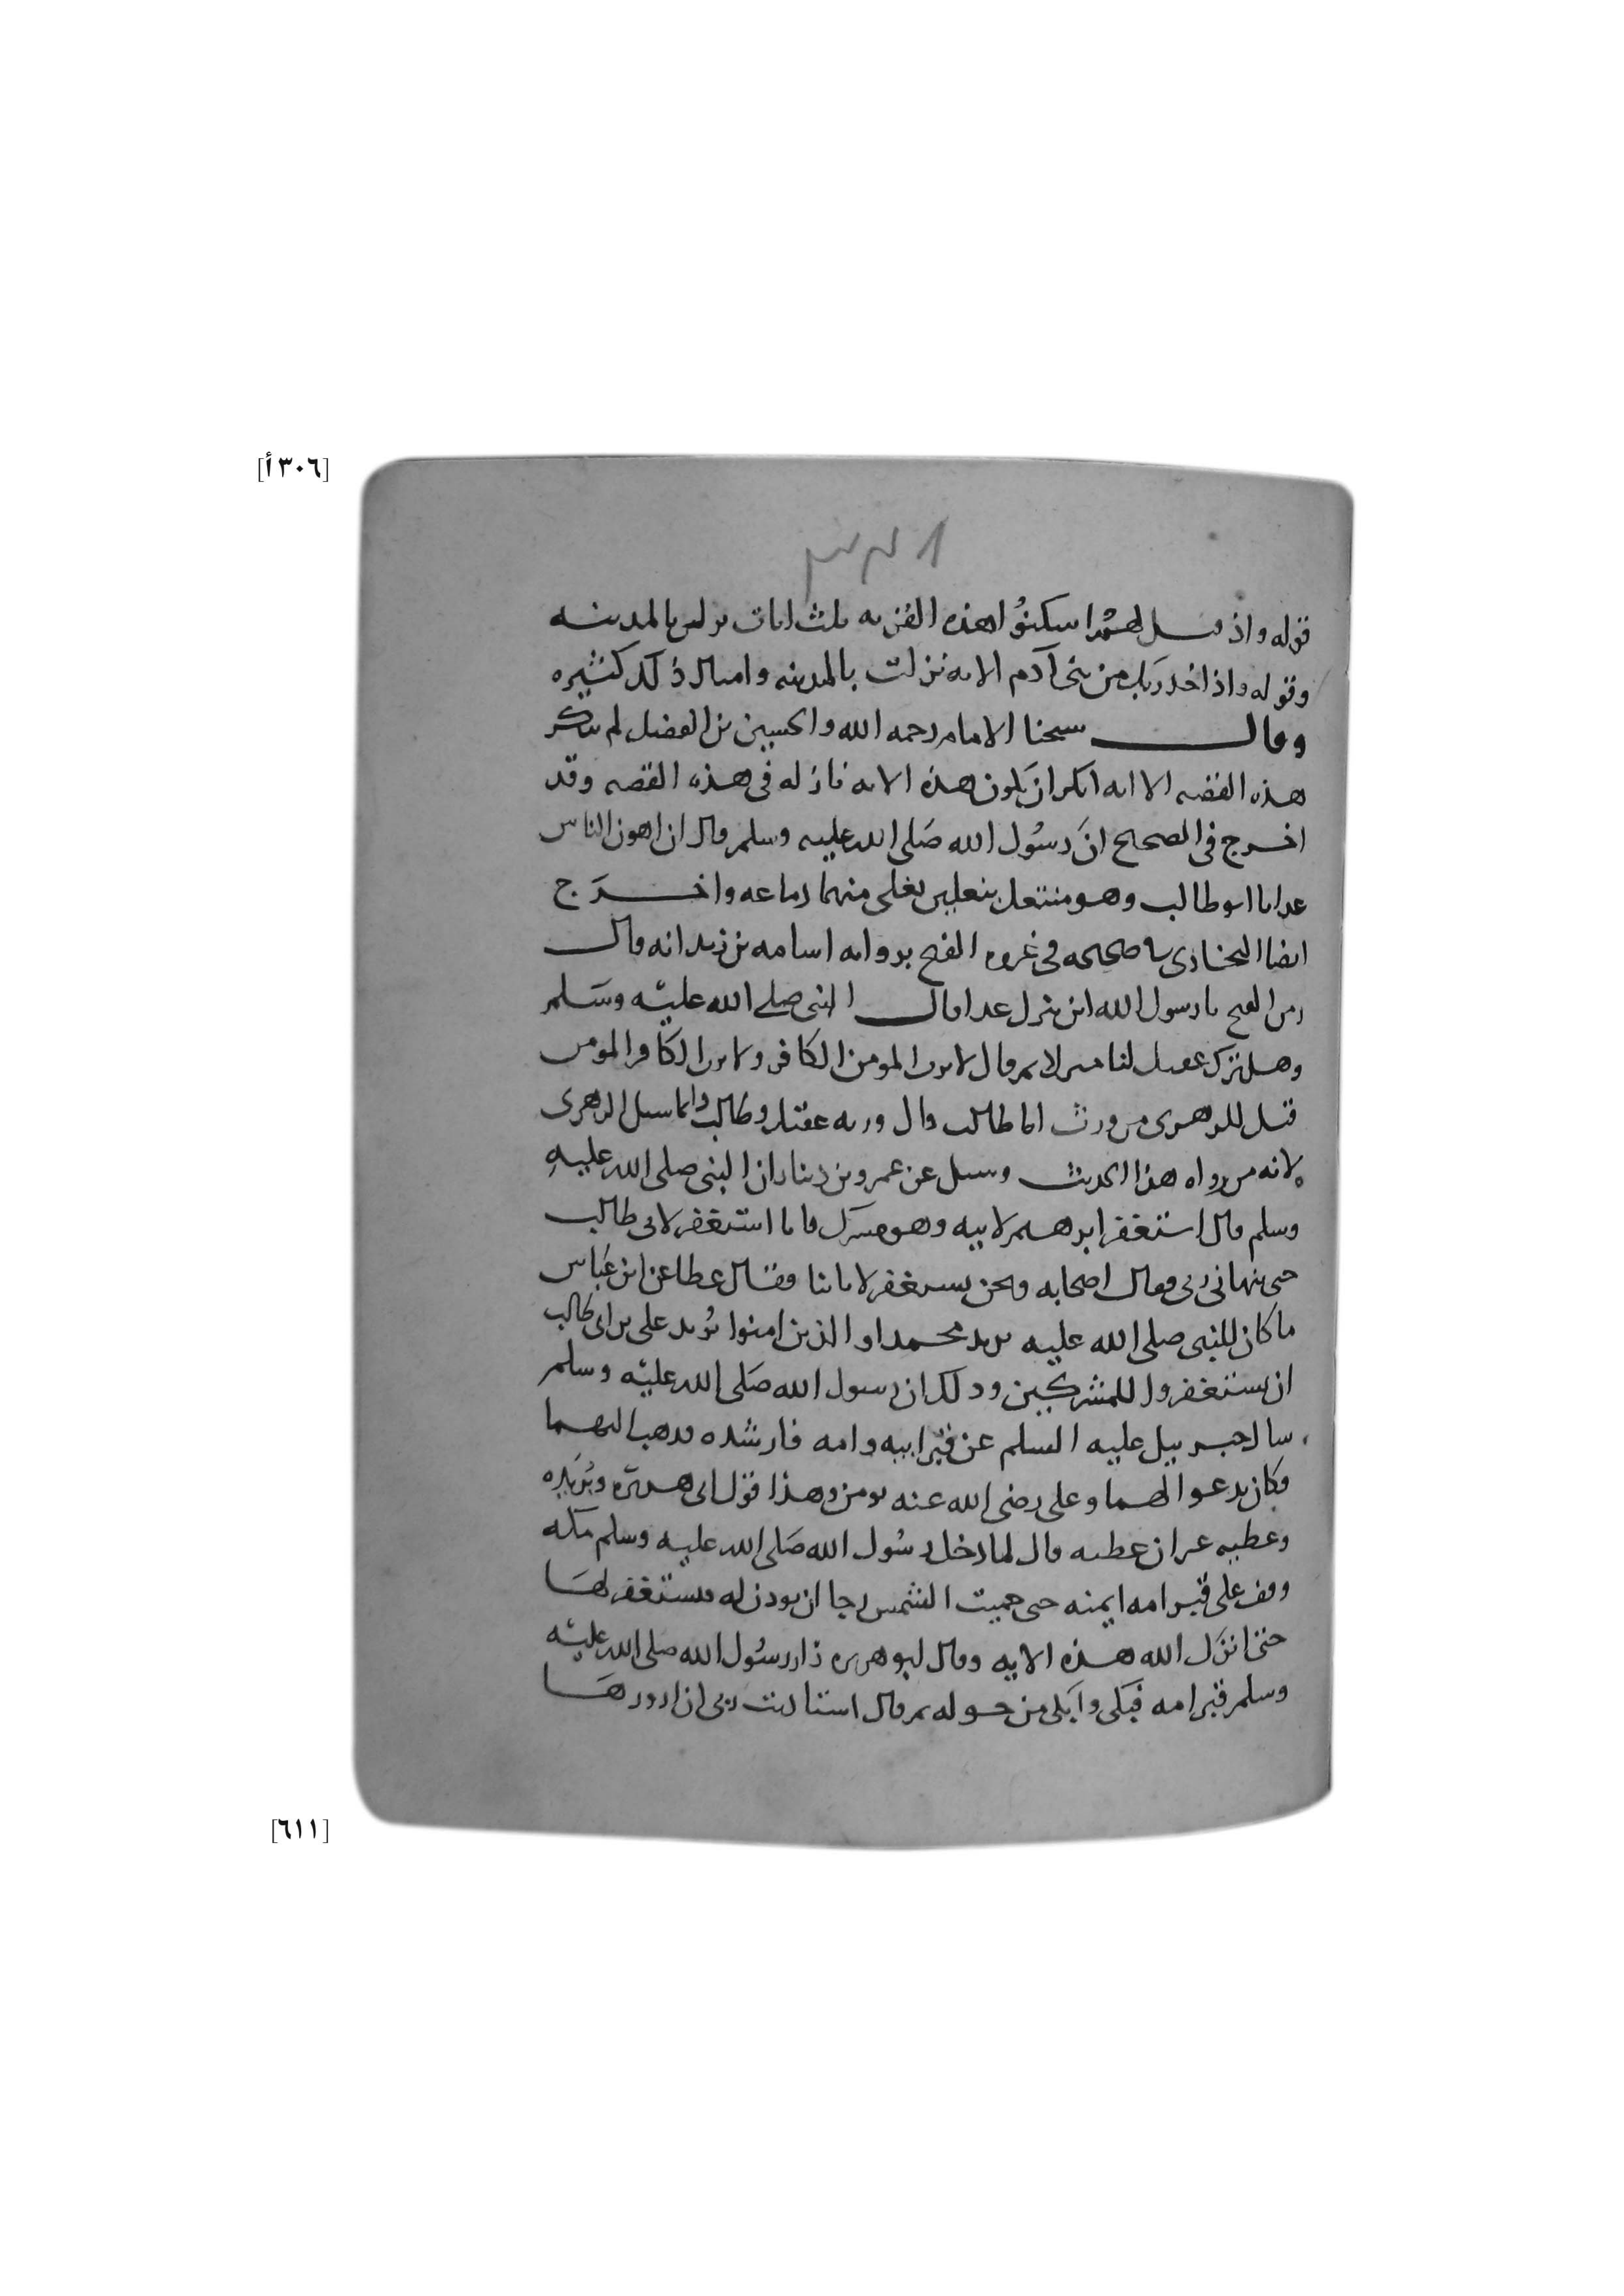 [٣٠٦ أ]
قوله واذ قيل لهم اسكنوا هذه القريه ثلث ايات نزلن بالمدينه
وقوله واذ اخذ ربك من بنى آدم الايه نزلت بالمدينه وامثال ذلك كثيره
وقال شيخنا الامام رحمه الله والحسين بن الفضل لم ينكر
هذه القصه الا انه انكر ان يكون هذه الايه نازله فى هذه القصه وقد
اخرج فى الصحيح ان رسول الله صلى الله عليه وسلم قال ان اهون الناس
عذابا ابو طالب وهو منتعل بنعلين يغلى منهما دماغه واخرج
ايضا البخارى فى صحيحه فى غزوه الفتح بروايه اسامه بن زيد انه قال
زمن الفتح يا رسول الله اين ننزل غدا قال النبى صلى الله عليه وسلم
وهل ترك عقيل لنا منزلا ثم قال لا يرث المومن الكافر ولا يرث الكافر المومن
قيل للزهرى من ورث ابا طالب قال ورثه عقيل وطالب وانما سيل الزهرى
لانه من رواه هذا الحديث وسيل عن عمرو بن دينار ان النبى صلى الله عليه
وسلم قال استغفر ابرهيم لابيه وهو مشرك فانا استغفر لابى طالب
حتى ينهانى ربى فقال اصحابه ونحن نستغفر لابائنا وقال عطا عن ابن عباس
ما كان للنبى صلى الله عليه يريد محمدا والذين امنوا يريد على بن ابى طالب
ان يستغفروا للمشركين وذلك ان رسول الله صلى الله عليه وسلم
سال جبرييل عليه السلم عن قبر ابيه وامه فارشده فذهب اليهما
فكان يدعو لهما وعلى رضى الله عنه يومن وهذا قول ابى هريره وبريده
وعطيه عن ابن عطيه قال لما دخل رسول الله صلى الله عليه وسلم مكه
وقف على قبر امه ايمنه حتى حميت الشمس رجا ان يوذن له فيستغفر لها
حتى انزل الله هذه الايه وقال ابو هريره زار رسول الله صلى الله عليه
وسلم قبر امه فبكى وابكى من حوله ثم قال استاذنت ربى ان ازورها
[٦١١]